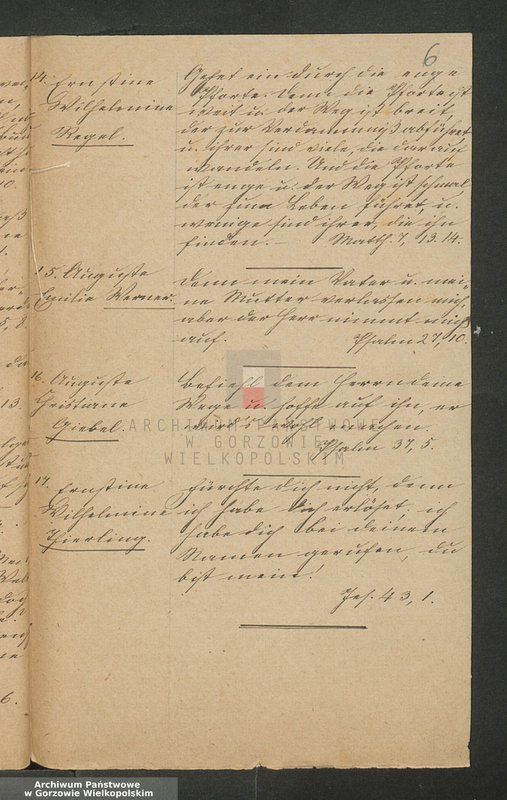 6
14. Ernstine
Wilhelmine
Regel.
Gehet ein durch die enge
Pforte. Denn die Pforte ist
weit u. der Weg ist breit
der zur Verdammniß abführet
u. ihrer sind viele, die darauf
wandeln. Und die Pforte
ist enge u. der Weg ist schmal
der zum Leben führet, u.
wenige sind ihrer, die ihn
finden. — Matth. 7, 13. 14.
15. Auguste
Emilie Werner.
Denn mein Vater u. mei-
ne Mutter verlassen mich
aber der Herr nimmt mich
auf. Psalm 27, 10.
16. Auguste
Christiane
Giebel.
Befiehl dem Herrn deine
Wege u. hoffe auf ihn, er
wird's wohl machen.
Psalm 37, 5.
17. Ernstine
Wilhelmine
Thierling.
Fürchte dich nicht, denn
ich habe dich erlöset. ich
habe dich bei deinem
Namen gerufen, du
bist mein!
Jes. 43, 1.
ARCHIWUM PAŃSTWOWE
W GORZOWIE
WIELKOPOLSKIM
Archiwum Państwowe
w Gorzowie Wielkopolskim